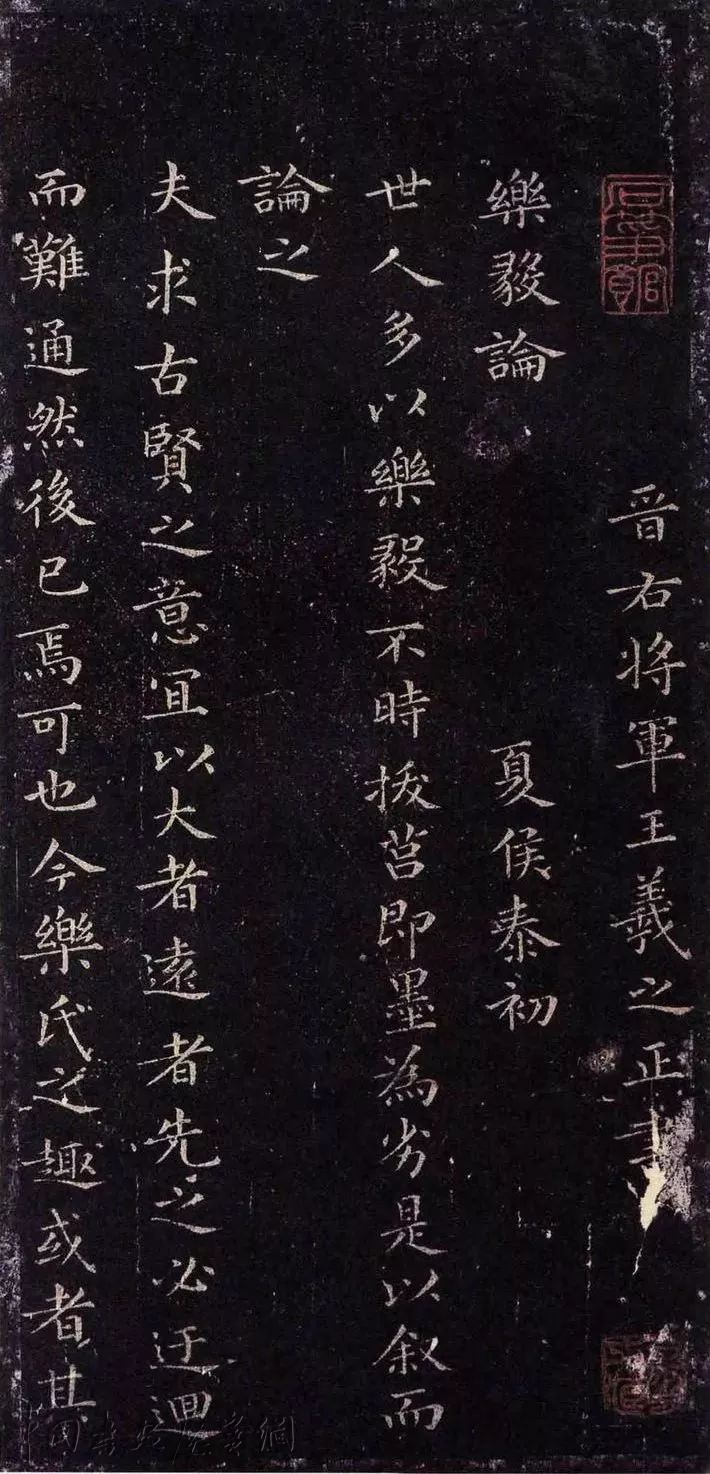 晋右将軍王羲之正書
樂毅論
夏侯泰初
世人多以樂毅不時拔莒即墨為劣是以叙而
論之
夫求古賢之意宜以大者遠者先之必迂迴
而難通然後已焉可也今樂氏之趣或者其